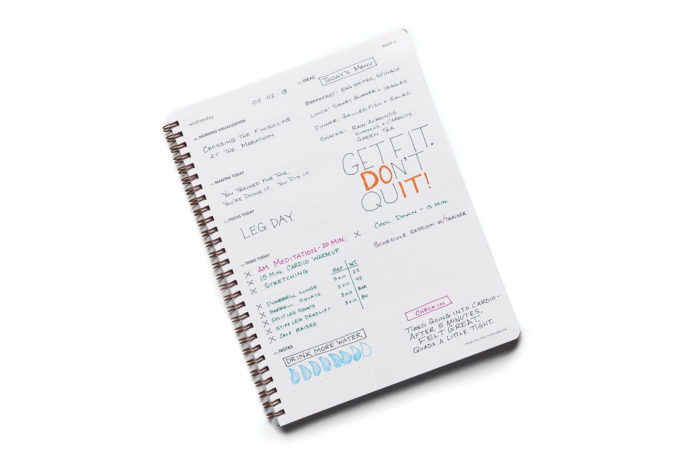 wednesday
05.02.18
MORNING VISUALIZATION
CROSSING THE FINISH LINE
AT THE MARATHON
MANTRA TODAY
YOU TRAINED FOR THIS.
YOU'RE DOING IT. YOU DID IT.
FOCUS TODAY
LEG DAY.
TASKS TODAY
X AM MEDITATION - 20 MIN.
X 15 MIN. CARDIO WARMUP
X STRETCHING
REP WT.
X DUMBBELL LUNGE
X BARBELL SQUATS
X SPLIT LEG SQUATS
X STIFF LEG DEADLIFT
X CALF RAISES
NOTES
DRINK MORE WATER
IDEAS
TODAY'S MENU
BREAKFAST: EGG WHITES, SPINACH
LUNCH: TURKEY BURGER + VEGGIES
DINNER: GRILLED FISH + SALAD
SNACKS: RAW ALMONDS
HUMMUS + CARROTS
GREEN TEA
GET IT.
DON'T
QUIT!
X COOL DOWN - 15 MIN.
SCHEDULE SESSION W/TRAINER
CHECK IN
TIRED GOING INTO CARDIO -
AFTER 5 MINUTES,
FELT GREAT.
QUADS A LITTLE TIGHT.